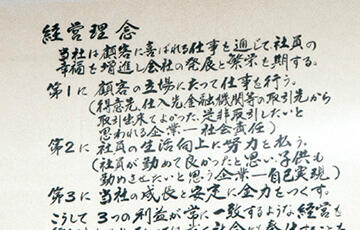 経営理念
当社は顧客に喜ばれる仕事を通じて社員の
幸福を増進し会社の発展と繁栄を期する。
第1に 顧客の立場に立って仕事を行う。
(得意先、仕入先金融機関等の取引先から
取引出来てよかった、是非取引したいと
思われる企業ー社会責任)
第2に 社員の生活向上に努力を払う。
(社員が勤めて良かったと思い、子供も
勤めさせたいと思う企業ー自己実現)
第3に 当社の成長と安定に全力をつくす。
こうして 3つの利益が常に一致するような経営を